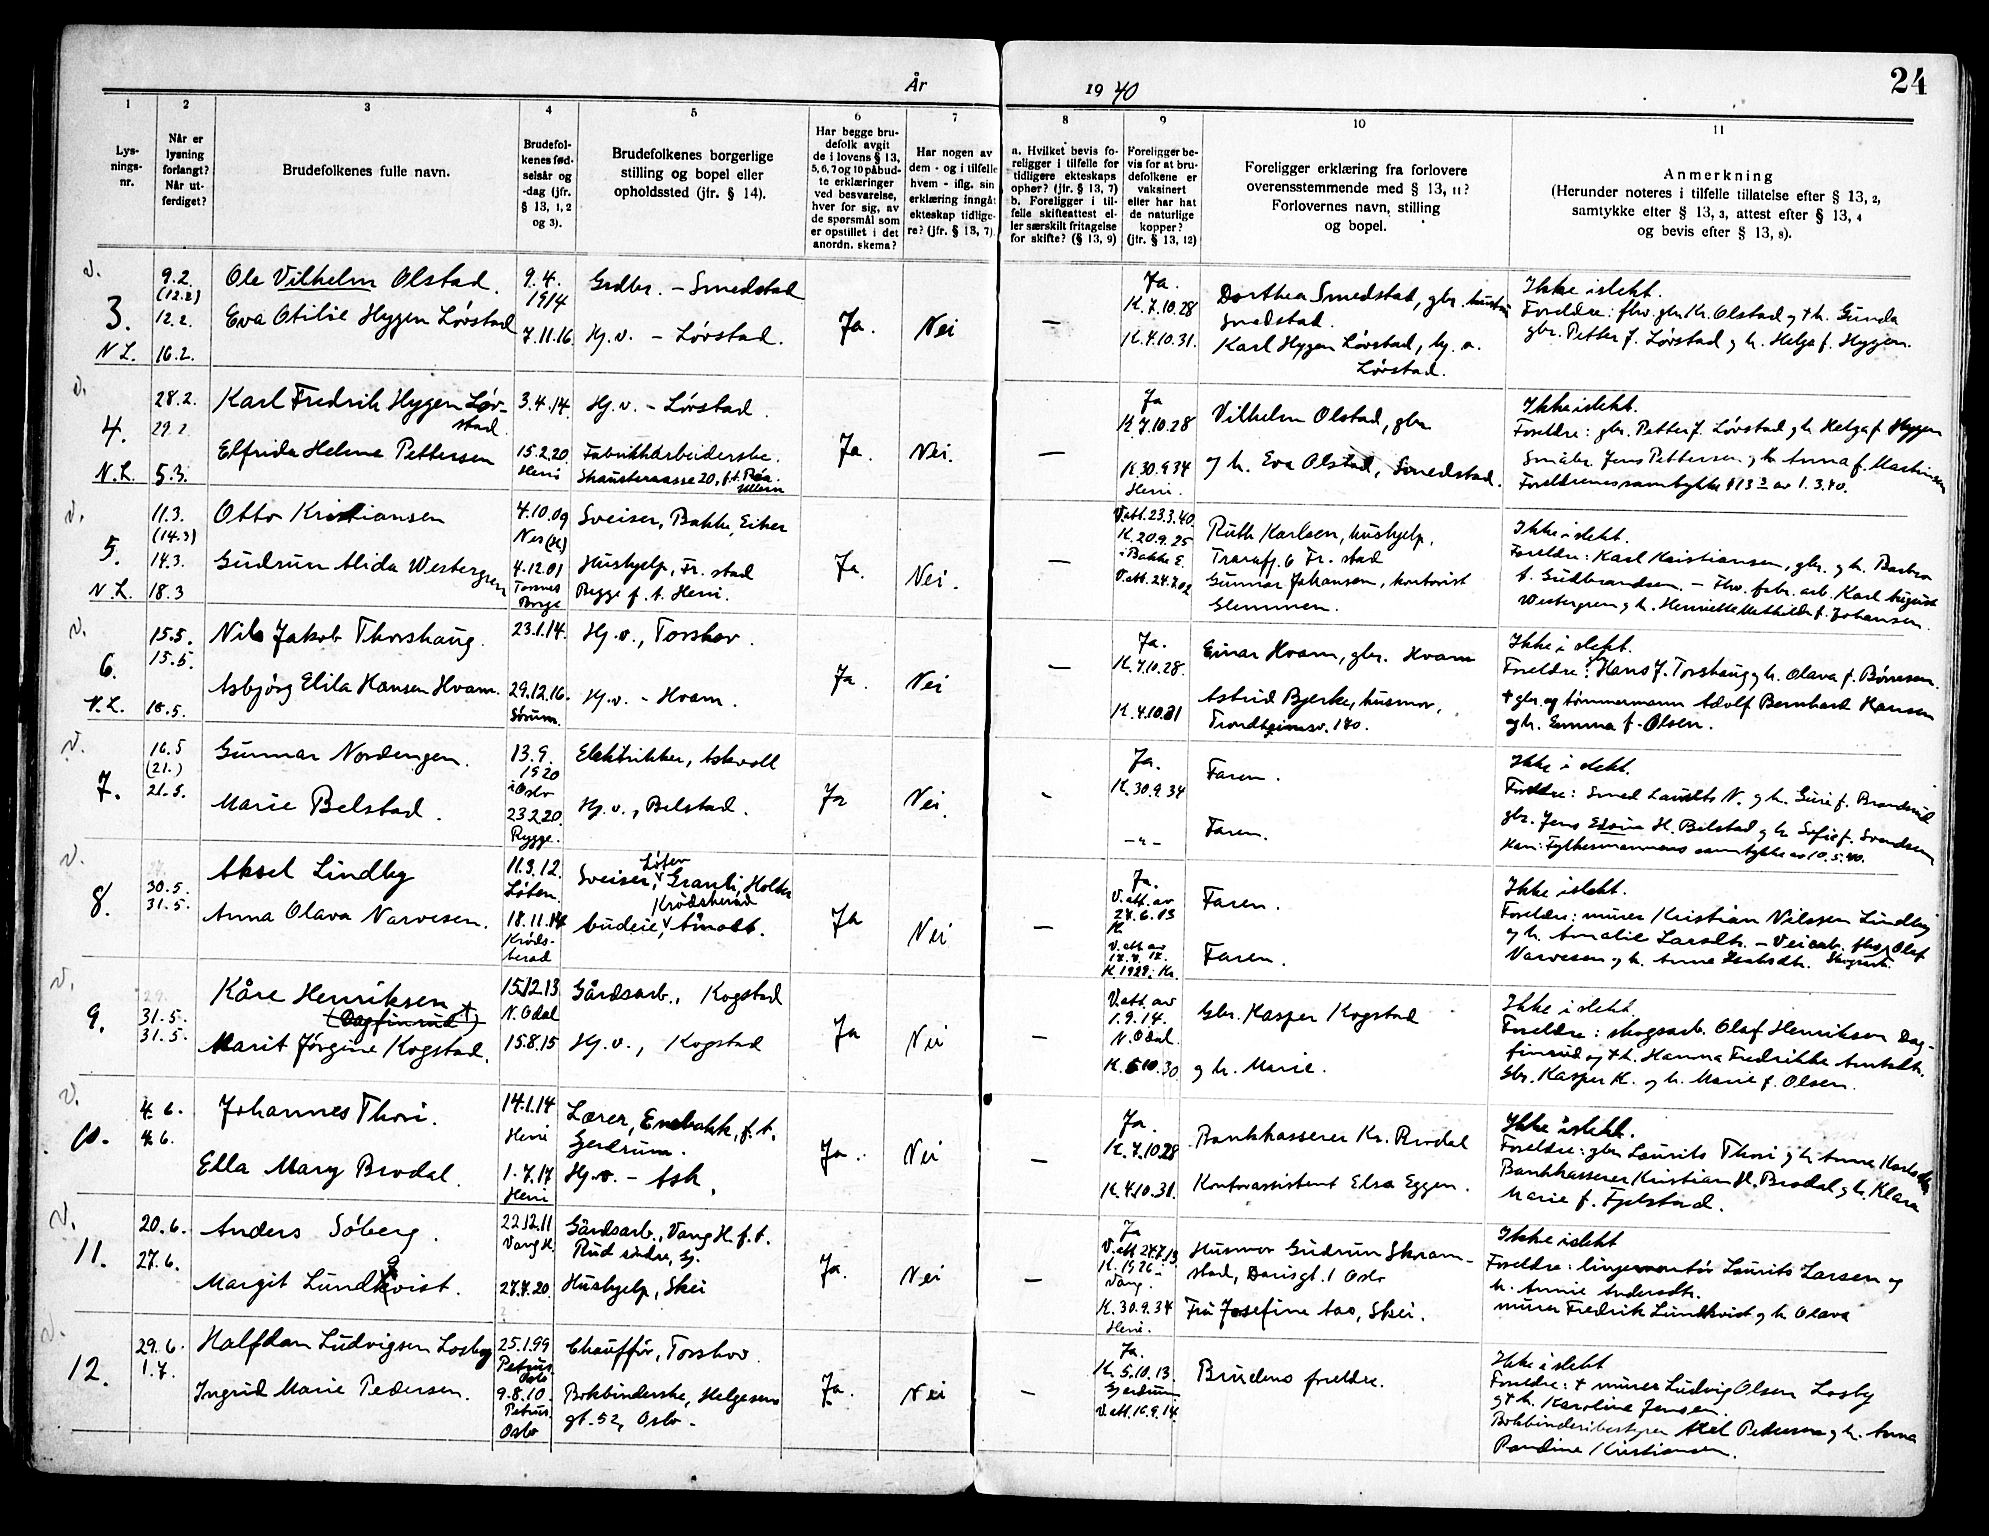 24
År 1940
1 2 3 4 5 6 7 8 9 10 11
Lys-
nings-
nr.
Når er
lysning
forlangt?
Når ut-
ferdiget?
Brudefolkenes fulle navn.
Brudefol-
kenes fød-
selsår og
-dag (jfr.
§ 13, 1, 2
og 3).
Brudefolkenes borgerlige
stilling og bopel eller
opholdssted (jfr. § 14).
Har begge bru-
defolk avgit
de i lovens § 13,
5, 6, 7 og 10 påbud-
te erklæringer
ved besvarelse,
hver for sig, av
de spørsmål som
er opstillet i det
anordn. skema?
Har nogen av
dem - og i tilfelle
hvem - iflg. sin
erklæring inngåt
ekteskap tidlige-
re? (jfr. § 13, 7)
a. Hvilket bevis fo-
religger i tilfelle for
tidligere ekteskaps
ophør? (jfr. § 13, 7)
b. Foreligger i til-
felle skifteattest el-
ler særskilt fritagelse
for skifte? (§ 13, 9)
Foreligger be-
vis for at bru-
defolkene er
vaksinert
eller har hat
de naturlige
kopper?
(jfr. § 13, 12)
Foreligger erklæring fra forlovere
overensstemmende med § 13, 11?
Forlovernes navn, stilling
og bopel.
Anmerkning
(Herunder noteres i tilfelle tillatelse efter § 13, 2,
samtykke efter § 13, 3, attest efter § 13, 4
og bevis efter § 13, 8).
v.
3.
N L.
9.2.
(12.2)
12.2.
16.2.
Ole Vilhelm Olstad.
Eva Otilie Hygen Løvstad
9.4.
1914
7.11.16
Grdbr. - Smedstad
Hj.v. - Løvstad.
Ja.
Nei
—
Ja.
K.7.10.28
K.4.10.31.
Dorthea Smedstad, gbr. hustru
Smedstad.
Karl Hygen Løvstad, hj. v.
Løvstad.
Ikke i slekt.
Foreldre: fhv. gbr Kr. Olstad og † h. Gunda
gbr. Petter J. Løvstad og h. Helga f. Hygen.
v.
4.
N.L.
28.2.
29.2.
5.3.
Karl Fredrik Hygen Løv-
stad.
Elfrida Helene Pettersen
3.4.14.
15.2.20.
Heni
Hj.v. - Løvstad.
Fabrikkarbeiderske.
20, f.t. Røa.
Ullern
Ja.
Nei.
—
Ja
K.7.10.28
K.30.9.34
Heni.
Vilhelm Olstad, gbr.
og h. Eva Olstad, Smedstad.
Ikke i slekt.
Foreldre: gbr. Petter J. Løvstad og h. Helga f. Hygen
Småbr. Jens Pettersen og h. Anna f. Martinsen
Foreldrenes samtykke § 13 3 av 1.3.40.
v.
5.
N L.
11.3.
(14.3)
14.3.
18.3
Otto Kristiansen
Gudrun Alida Westergren
4.10.09
Nes (H)
4.12.01
Torsnes
Borge
Sveiser, Bakke, Eiker
Hushjelp, Fr. stad
Rygge f. t. Heni.
Ja.
Nei.
—
V.att. 23.3.40.
K.20.9.25
i Bakke E.
V.att. 24.7.02
Ruth Karlsen, hushjelp.
6 Fr. stad
Gunnar Johansen, kontorist
Glemmen.
Ikke i slekt.
Foreldre: Karl Kristiansen, gbr. og h. Barbro
f. Gudbrandsen. - Fhv. fabr. arb. Karl August
Westergren og h. Henriette Mathilde f. Johansen.
v.
6.
N.L.
15.5.
15.5.
18.5.
Nils Jakob Thorshaug.
Asbjørg Elila Hansen Hvam.
23.1.14.
29.12.16.
Sørum.
Hj.v., Torshov.
Hj.v. - Hvam.
Ja.
Nei
—
Ja.
K.7.10.28.
K.4.10.31
Einar Hvam, gbr. Hvam
Astrid Bjerke, husmor,
Trondheimsv. 140.
Ikke i slekt.
Foreldre: Hans J. Torshaug og h. Olava f. Børresen.
† gbr. og tømmermann Adolf Bernhard Hansen
og h. Emma f. Olsen.
v.
7.
16.5
(21.)
21.5.
Gunnar Nordengen.
Marie Belstad.
13.9.
1920
i Oslo
23.2.20.
Rygge.
Elektrikker, Askvoll
Hj.v., Belstad.
Ja
Nei.
-
Ja.
K.30.9.34
- " -
Faren.
Faren.
Ikke i slekt.
Foreldre: Smed Laurits N. og h. Guri f. Branderud
gbr. Jens Edvin H. Belstad og h. Sofie f. Svendsen
Kan: Fylkesmannens samtykke av 10.5.40.
v.
8.
30.5.
31.5.
Aksel Lindby
Anna Olava Narvesen.
11.3.12.
Løten.
18.11.14
Krøds-
herad
Løten
Sveiser, Granli, Holter
Krødsherad
budeie, Åmodt.
Ja
Nei
—
Ja.
V.att. av
24.6.13
K
V.att av
K.1929. Kr.
Faren.
Faren.
Ikke i slekt.
Foreldre: murer Kristian Nilssen Lindby
og h. Amalie Larsdtr. - Veiarb. Olaf
Narvesen og h. Anne
v.
9.
29.
31.5.
31.5.
Kåre Henriksen
(Dagfinrud †)
Marit Jørgine Kogstad.
15.12.13
N.Odal
15.8.15
Gårdsarb., Kogstad
Hj.v., Kogstad
Ja
Nei
—
V.att. av
1.9.14.
N.Odal.
K.5.10.30
Gbr. Kasper Kogstad
og h. Marie.
Ikke i slekt.
Foreldre: skogsarb. Olaf Henriksen Dag-
finrud og † h. Hanna Fredrikke
Gbr. Kasper K. og h. Marie f. Olsen.
v.
10.
4.6.
4.6.
Johannes Thori.
Ella Mary Brodal.
14.1.14
Heni
1.7.17
Heni
Lærer, Enebakk, f.t.
Gjerdrum.
Hj.v. - Ask.
Ja.
Nei
—
Ja.
K.7.10.28
K.4.10.31.
Bankkasserer Kr. Brodal
Kontorassistent Elsa Eggen.
Ikke i slekt.
Foreldre: gbr Laurits Thori og h. Anna Karlsdtr
Bankkasserer Kristian H. Brodal og h. Klara
Marie f. Fjelstad.
v.
11.
20.6.
27.6.
Anders Søberg.
Margit Lundkvist.
q
22.12.11
Vang H.
27.4.20.
Gårdsarb., Vang H. f.t.
Rud søndre, Gj.
Hushjelp, Skei
Ja.
Nei
—
Ja
V.att. 24.7.13
K.1926-
Vang.
K.30.9.34
Heni.
Husmor Gudrun Skram-
stad, Darisgt. 1 Oslo
Fru Josefine Aas, Skei.
Ikke i slekt
Foreldre: linjemontør Laurits Larsen og
h. Annie Andersdtr.
murer Fredrik Lundkvist og h. Olava
v.
12.
29.6.
1.7.
Halfdan Ludvigsen Losby
Ingrid Marie Pedersen.
25.1.99
Petrus
Oslo
9.8.10.
Petrus.
Oslo
Chauffør, Torshov.
Bokbinderske, Helgesens
gt. 52, Oslo.
Ja.
Nei
—
Ja.
K.5.10.13.
Gjerdrum
V.att. 16.9.14.
Brudens foreldre.
Ikke i slekt
Foreldre: † murer Ludvig Olsen Losby
og † h. Karoline Jensen.
Bokbinderibestyrer Axel Pedersen og h. Anna
Randine Kristiansen.